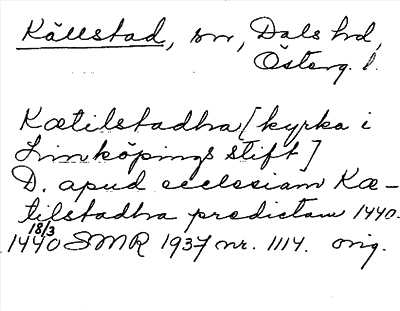 Källstad, sn, Dals hd,
Österg. l.
Kætilstadhra [kyrka i
Linköpings stift]
D. apud ecclesiam Kæ-
tilstadhra predictam 1440.
18/3
1440 SMR 1937 nr. 1114. orig.